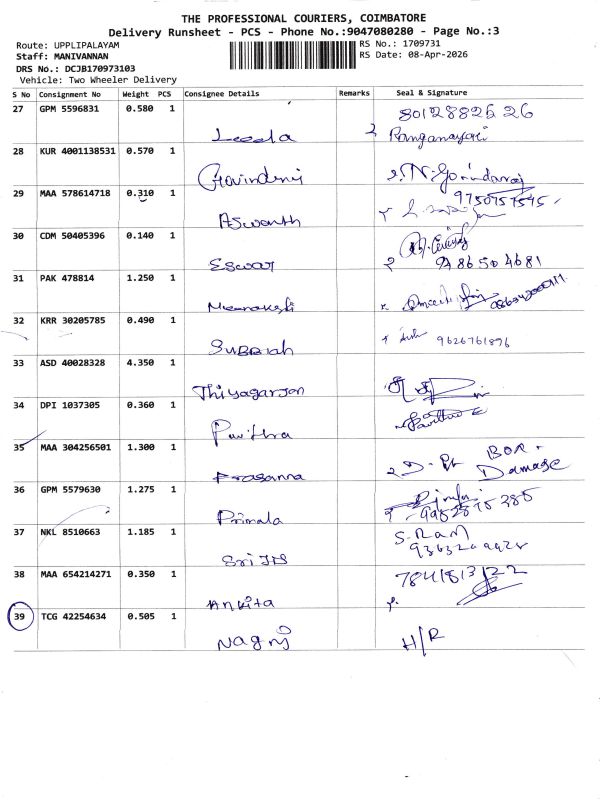 THE PROFESSIONAL COURIERS, COIMBATORE
Delivery Runsheet - PCS - Phone No.:9047080280 - Page No.:3
Route: UPPLIPALAYAM
RS No.: 1709731
Staff: MANIVANNAN
RS Date: 08-Apr-2026
DRS No.: DCJB170973103
Vehicle: Two Wheeler Delivery
S No Consignment No Weight PCS Consignee Details Remarks Seal & Signature
27 GPM 5596831 0.580 1
Leela
28 KUR 4001138531 0.570 1
29 MAA 578614718 0.310 1
Aswanth
30 CDM 50405396 0.140 1
Eswar
31 PAK 478814 1.250 1
32 KRR 30205785 0.490 1
Subbiah 9626761896
33 ASD 40028328 4.350 1
Thiyagarjan
34 DPI 1037305 0.360 1
Pavithra
35 MAA 304256501 1.300 1
Prasanna Damage
36 GPM 5579630 1.275 1
Primala
37 NKL 8510663 1.185 1
S. Ram
38 MAA 654214271 0.350 1
Ankita
39 TCG 42254634 0.505 1
Nagraj H/R